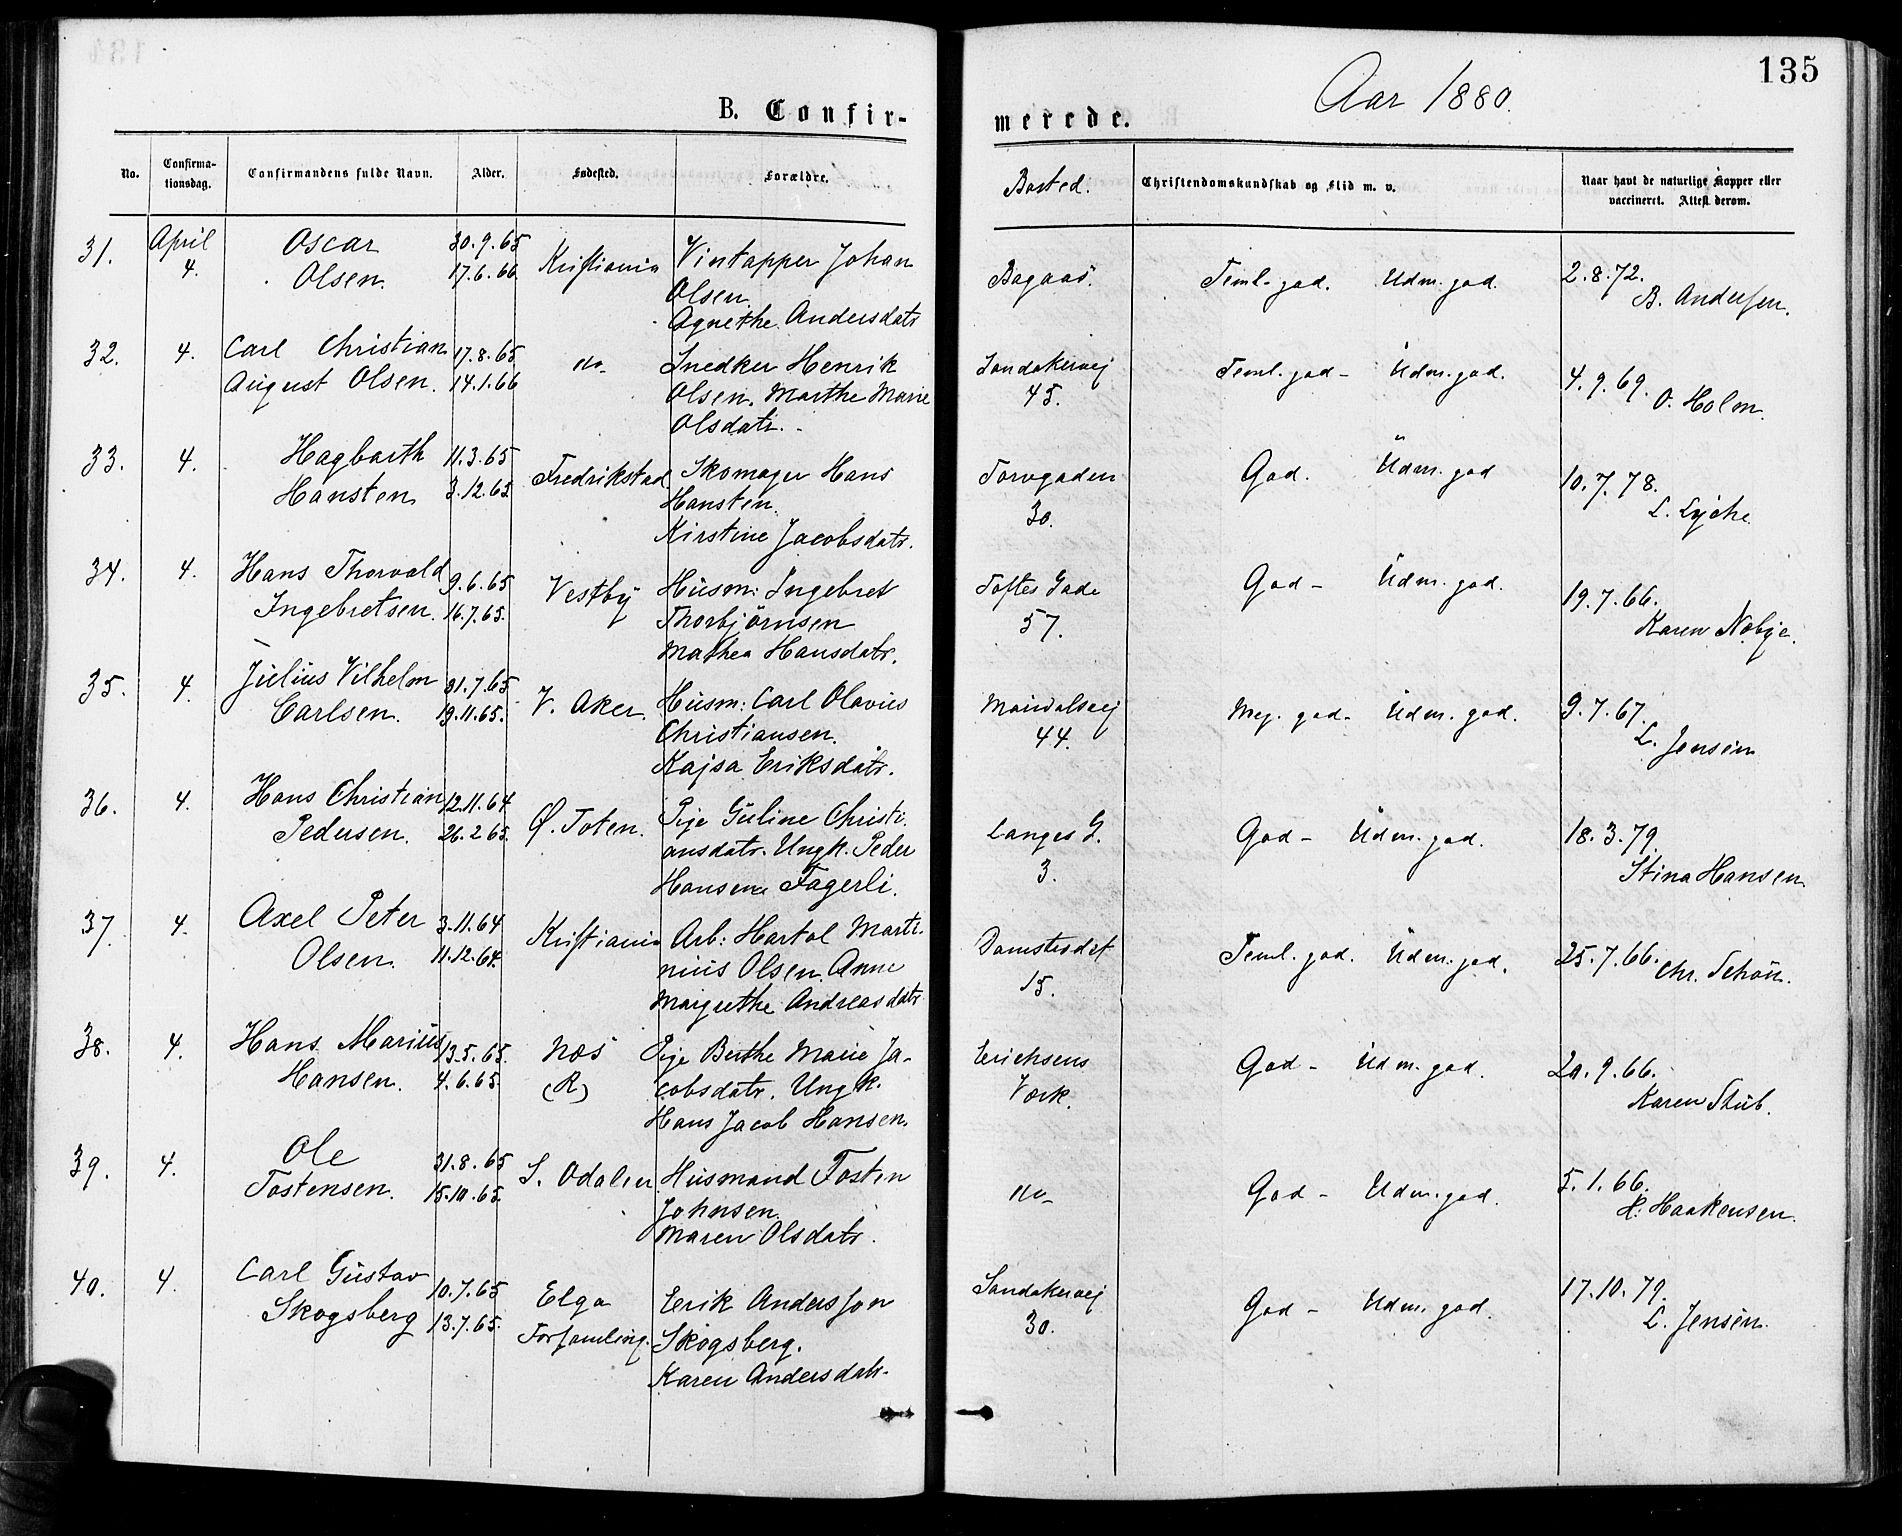 135
Aar 1880.
B. Confir-
merede.
No. Confirma-tionsdag. Confirmandens fulde Navn. Alder. Fødested. Forældre. Bosted. Christendomskundskab og Flid m. v. Naar havt de naturlige Kopper eller vaccineret. Attest derom.
31. April Oscar 30.9.65 Kristiania Vintapper Johan
4. Olsen. 17.6.66 Olsen.
Agnethe Andersdatr
Bagaas. Teml. god. Udm. god. 2.8.72.
B. Andersen.
32. 4. Carl Christian 17.8.65 do Snedker Henrik
August Olsen. 14.1.66 Olsen. Marthe Marie
Olsdatr.
Sandakervej Teml. god - Udm. god. 4.9.69.
45. O. Holm.
33. 4. Hagbarth 11.3.65 Fredrikstad Skomager Hans
Hansten 3.12.65 Hansten.
Kirstine Jacobsdatr.
Torvgaden God. Udm. god 10.7.78.
30. L. Lyche
34. 4. Hans Thorvald 9.6.65 Vestby Husm: Ingebret
Ingebretsen. 16.7.65. Thorbjörnsen
Mathea Hansdatr.
Toftes Gade God - Udm. god. 19.7.66.
57. Karen Nøbye.
35. 4. Julius Vilhelm 31.7.65 V. Aker. Husm: Carl Olavus
Carlsen. 19.11.65. Christiansen.
Kajsa Eriksdatr.
Maridalsvej Meg. god - Udm. god. 9.7.67.
44. L. Jensen
36. 4. Hans Christian 12.11.64 Ø. Toten. Pige Guline Christi-
Pedersen. 26.2.65. ansdatr. Ungk. Peder
Hansen Fagerli.
Langes G. God - Udm. god. 18.3.79.
3. Stina Hansen
37. 4. Axel Peter 3.11.64 Kristiania Arb: Hartol Marti-
Olsen. 11.12.64. nius Olsen. Anne
Margrethe Andreasdatr
Damstredet Teml. god. Udm. god. 25.7.66. Chr. Schön.
15.
38. 4. Hans Marius 13.5.65. Næs Pige Berthe Marie Ja-
Hansen. 4.6.65. (R) cobsdatr. Ungk.
Hans Jacob Hansen.
Erichsens God - Udm. god. 20.9.66.
Værk. Karen Stub.
39. 4. Ole 31.8.65 S. Odalen Husmand Tosten
Tostensen. 15.10.65. Johnsen.
Maren Olsdatr.
do God - Udm. god. 5.1.66.
H. Haakensen.
40. 4. Carl Gustav 10.7.65 Elga Erik Andersson
Skogsberg 13.7.65. Forsamling. Skogsberg.
Karen Andersdatr.
Sandakervej God - Udm. god. 17.10.79.
30. L. Jensen.